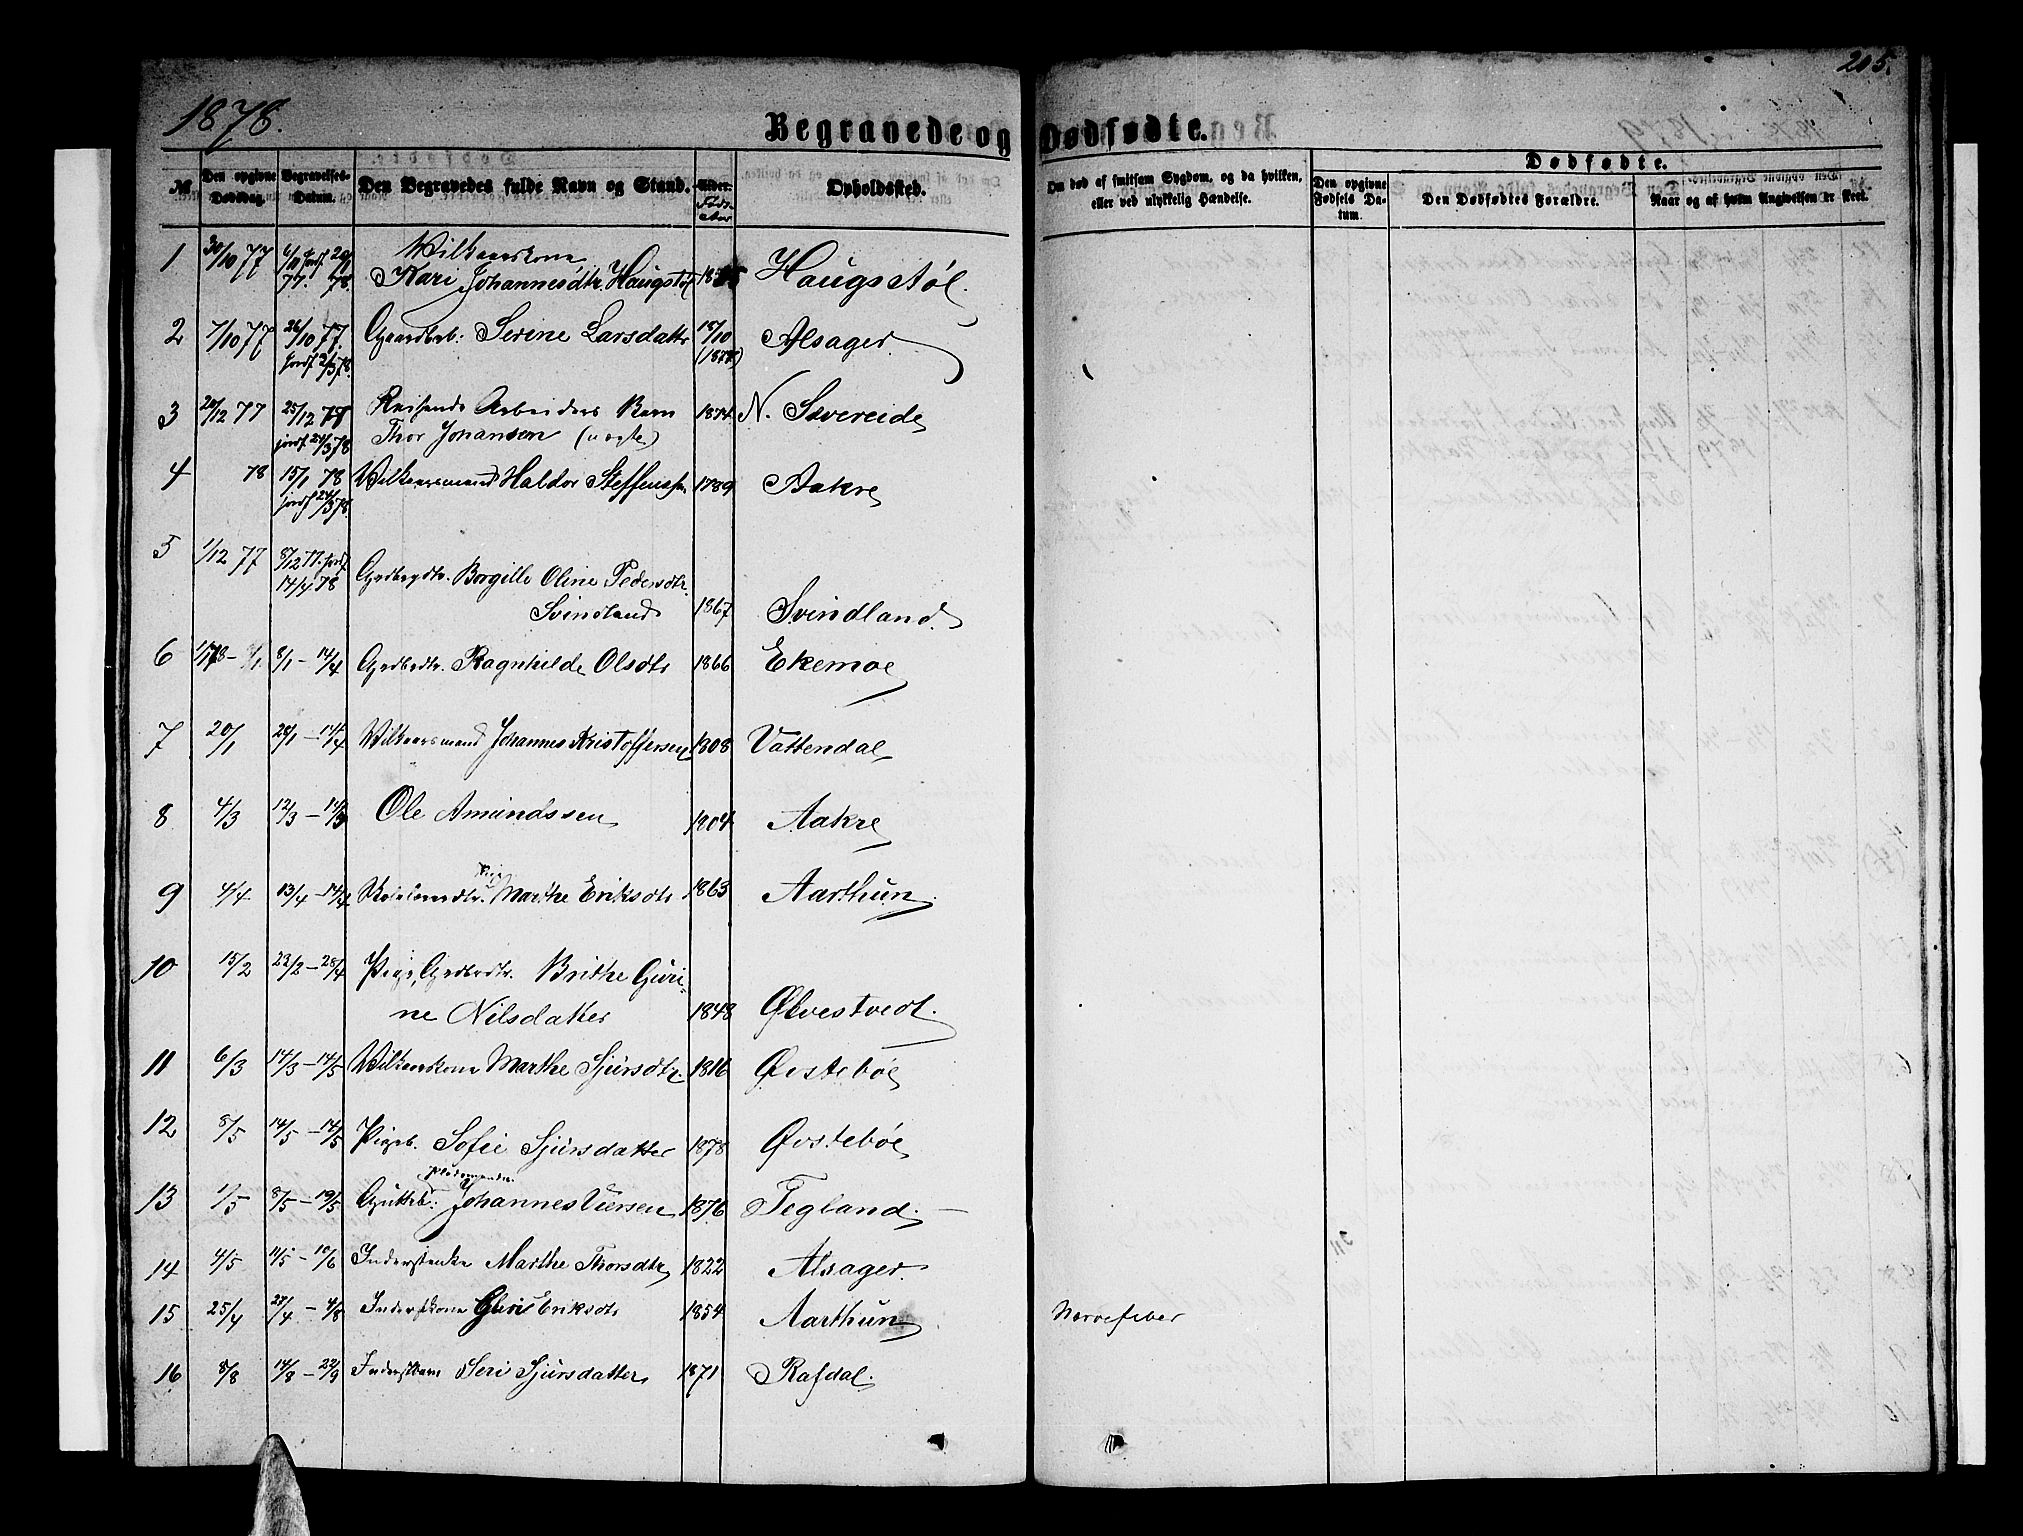 1878.
205.
Begravede og Dødfødte.
№
Den opgivne Dødsdag.
Begravelses-Datum.
Den Begravedes fulde Navn og Stand.
Alder. Føds-Aar
Opholdssted.
Om død af smitsom Sygdom, og da hvilken, eller ved ulykkelig Hændelse.
Dødfødte.
Den opgivne Fødsels Datum.
Den Dødfødtes Forældre.
Naar og af hvem Angivelsen er skeet.
1 30/10 77 77. 78. Kari Johannesdtr. Haugstøl Haugstøl.
2 7/10 77 26/10 77. jordf 2/3 78. Serine Larsdatter 18/10 Alsager
3 20/12 77 25/12 77 jordf 24/3 78 Reisende Arbeiders Barn 1874 N. Severeide
Thor Johansen
4 78 15/1 78 jordf 24/3 78. Vilkaarsmand Haldor Steffenssen 1789 Aakre
5 1/12 77 8/12 77. jordf. 14/4 78 Grdbrgdtr. Borgille Oline Pedersdtr.
Svindland 1867 Svindland.
6 8/1 – 14/4 Grdbrdtr. Ragnhilde Olsdtr 1866 Ekemoe
7 20/1 28/1 – 14/4 Vilkaarsmand Johannes Kristoffersen 1808 Vattendal
8 4/3 12/3 – 14/3 Ole Amundssen 1804 Aakre
9 4/4 13/4 – 14/4 Pige Marthe Eriksdtr 1863 Aarthun.
10 15/2 22/2 – 28/4 Pige, Grdbrdtr. Brithe Guri-
ne Nilsdatter 1848 Ølvestvedt.
11 6/3 14/3 – 14/5 Vilkaarskone Marthe Sjursdtr. 1816 Øvstebøe
12 8/5 14/5 – 14/5 Pigeb. Sofie Sjursdatter 1878 Øvstebøe
13 1/5 8/5 – 19/5 Gutteb: Johannes Viersen 1876 Tegland.
14 4/5 11/5 – 10/6 Inderstenke Marthe Thorsdtr 1822 Alsager.
15 25/4 28/4 – 4/8 Inderstkone Guri Eriksdtr 1854 Aarthun Nervefeber
16 8/8 14/8 – 22/9 Inderstbarn Seri Sjursdatter 1871 Rafdal.